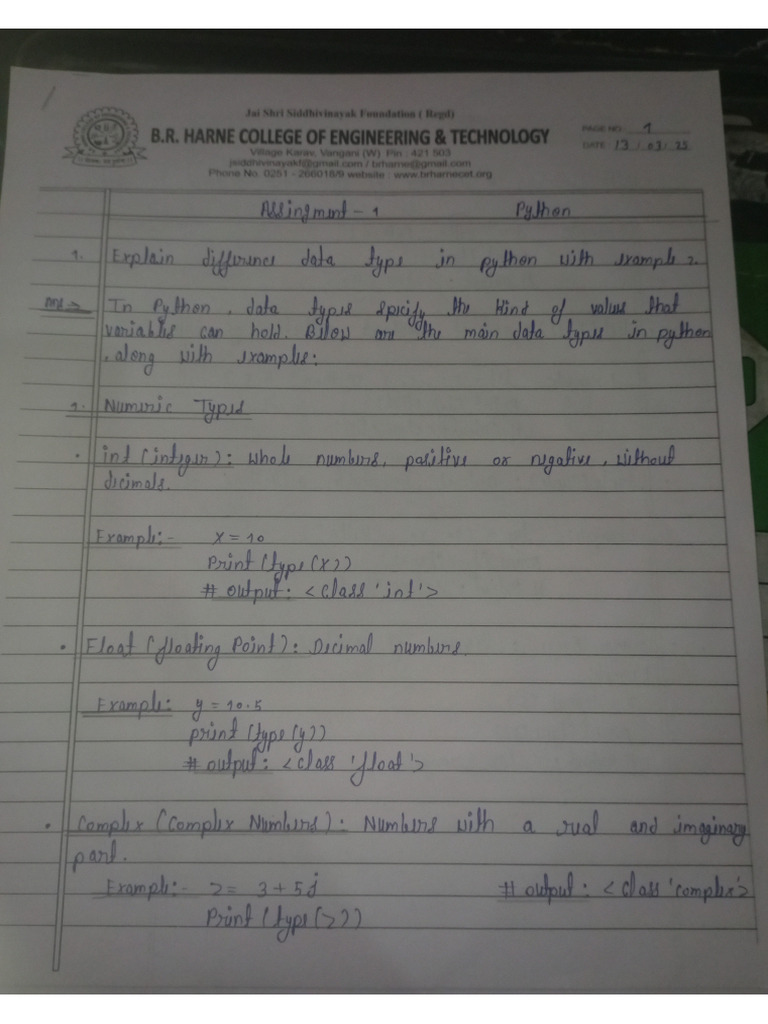 Jai Shri Siddhivinayak Foundation ( Regd)
B.R. HARNE COLLEGE OF ENGINEERING & TECHNOLOGY
Village Karav, Vangani (W) Pin : 421 503
jsiddhivinayakf@gmail.com / brharne@gmail.com
Phone No. 0251 - 266018/9 website : www.brharnecet.org
PAGE NO. 1
DATE : 13 / 03 / 25
Assingment - 1 Python
1. Explain difference data type in python with example?
Ans → In Python, data types specify the kind of values that
variables can hold. Below are the main data types in python
, along with examples:
1. Numeric Types
• int (integer): whole numbers, positive or negative, without
decimals.
Example:- x = 10
Print (type (x))
# output: <class 'int'>
• Float (floating Point): Decimal numbers.
Example: y = 10.5
print (type (y))
# output: <class 'float'>
• Complex (Complex Numbers): Numbers with a real and imaginary
part.
Example:- z = 3 + 5j # output: <class 'complex'>
Print (type (z))